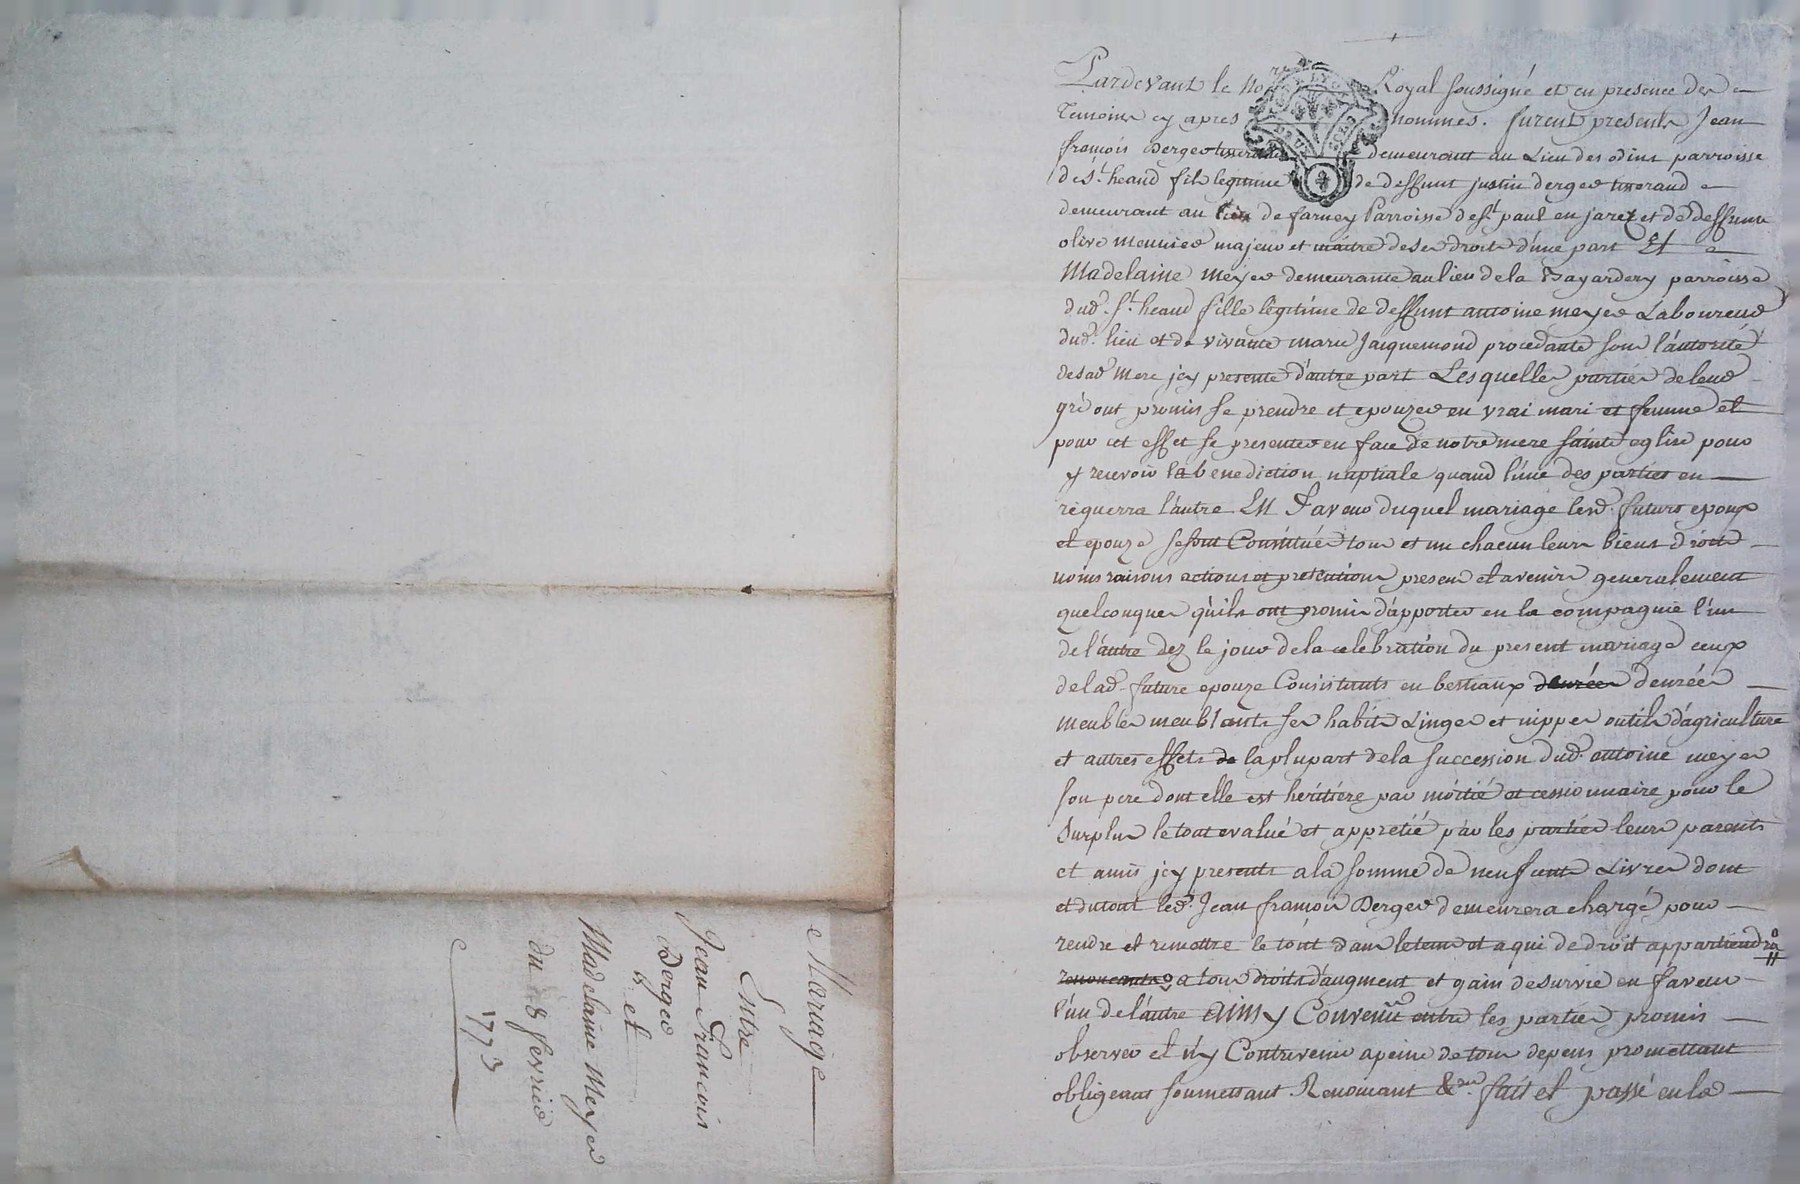 Mariage
Entre
Jean François
Berger
et
Madelaine Meyer
du 8 fevrier
1773
Pardevant le No.re Royal soussigné et en presence des
Temoins cy apres nommés. furent presents Jean
françois Berger tisserand demeurant au Lieu des odins parroisse
de st. heand fils legitime de deffunt justin berger tisserand
demeurant au lieu de farney Parroisse de st. paul en jarez et de deffunte
olive meunier majeur et maitre de ses droits d'une part Et
Madelaine meyer demeurante au lieu de la Bayardery parroisse
dud. st. heand fille legitime de deffunt antoine meyer Laboureur
dud. lieu et de vivante marie Jacquemond procedante sous l'autorité
de sad. mere jcy presente d'autre part Lesquelles parties de leur
gré ont promis se prendre et epouzer en vrai mari et femme et
pour cet effet se presenter en face de notre mere sainte eglise pour
y recevoir la benediction nuptiale quand l'une des parties en
requerra l'autre En Faveur duquel mariage lesd. futurs epoux
et epouze se sont Constitués tous et un chacun leurs biens droits
noms raisons actions et pretentions presens et avenirs generalement
quelconques qu'ils ont promis d'apporter en la compagnie l'un
de l'autre dez le jour de la celebration du present mariage ceux
de lad. future epouze Consistants en bestiaux denrées denrées
meubles meublants ses habits Linges et nippes outils d'agriculture
et autres effets de la plupart de la succession dud. antoine meyer
son pere dont elle est heritiere par moitié et cessionnaire pour le
surplus le tout evalué et appretié par les parties leurs parents
et amis jcy presents a la somme de neuf cents Livres dont
et du tout led. Jean françois Berger demeurera chargé pour
rendre et remettre le tout dans le tems et a qui de droit appartiendra
renonçants a tous droits d'augment et gain de survie en faveur
l'un de l'autre Ainsy Convenu entre les parties promis
observer et n'y Contrevenir a peine de tous depens promettant
obligeant soumettant Renonçant &. fait et passé en la